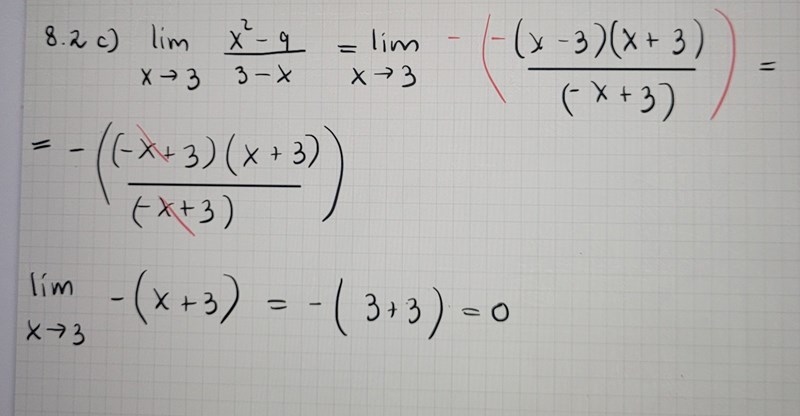 8.2 c) lim x→3 (x² - 9)/(3 - x) = lim x→3 - (-(x - 3)(x + 3)/(-x + 3)) =
= - ((-x + 3)(x + 3)/(-x + 3))
lim x→3 -(x + 3) = -(3 + 3) = 0